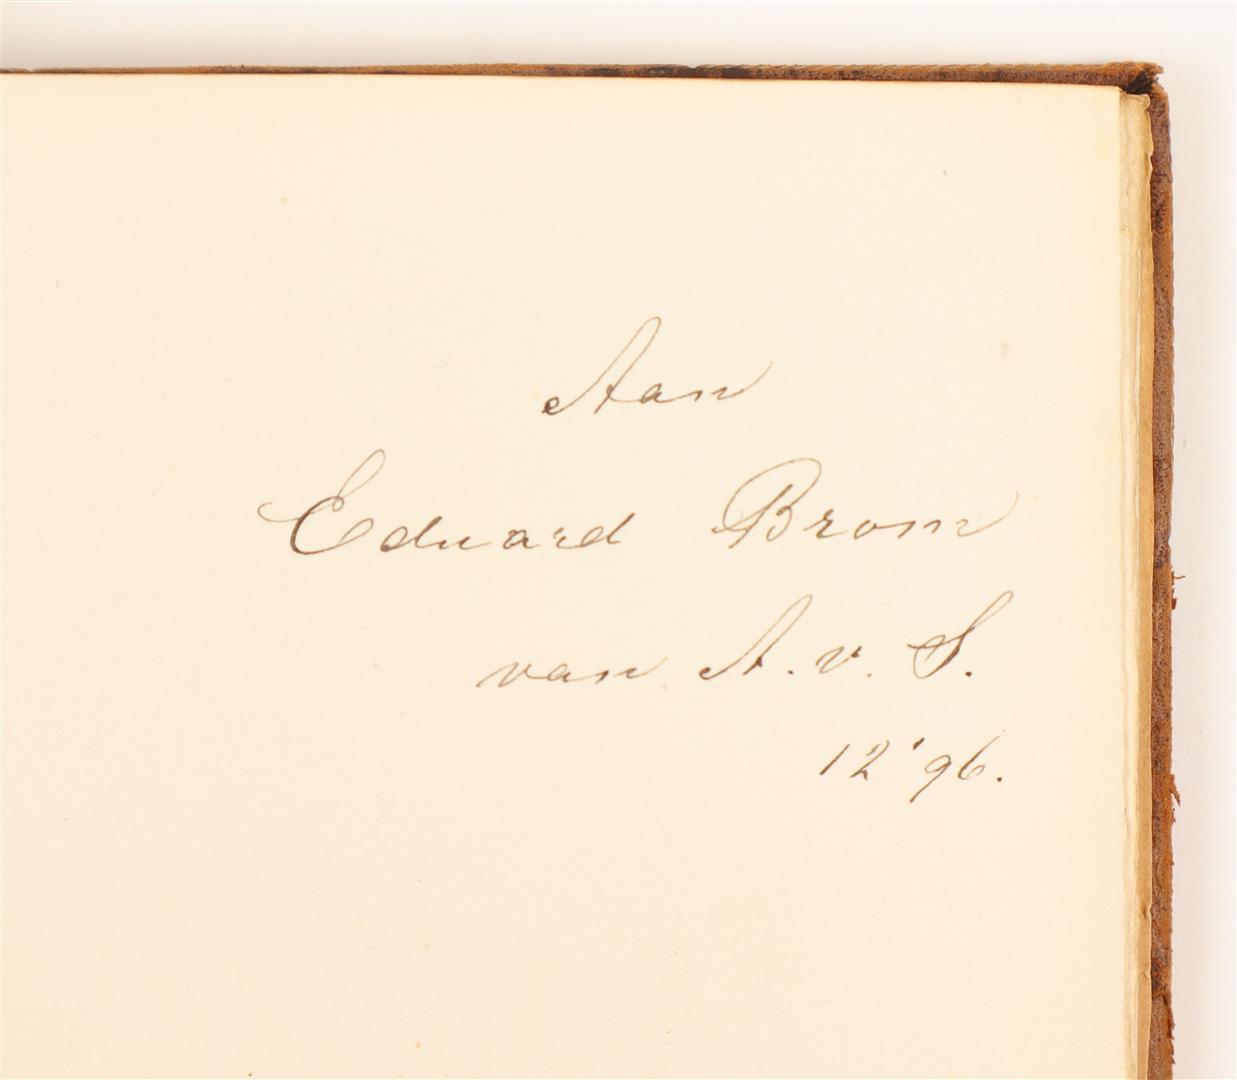 Aan
Eduard Brom
van A. v. S.
12 '96.